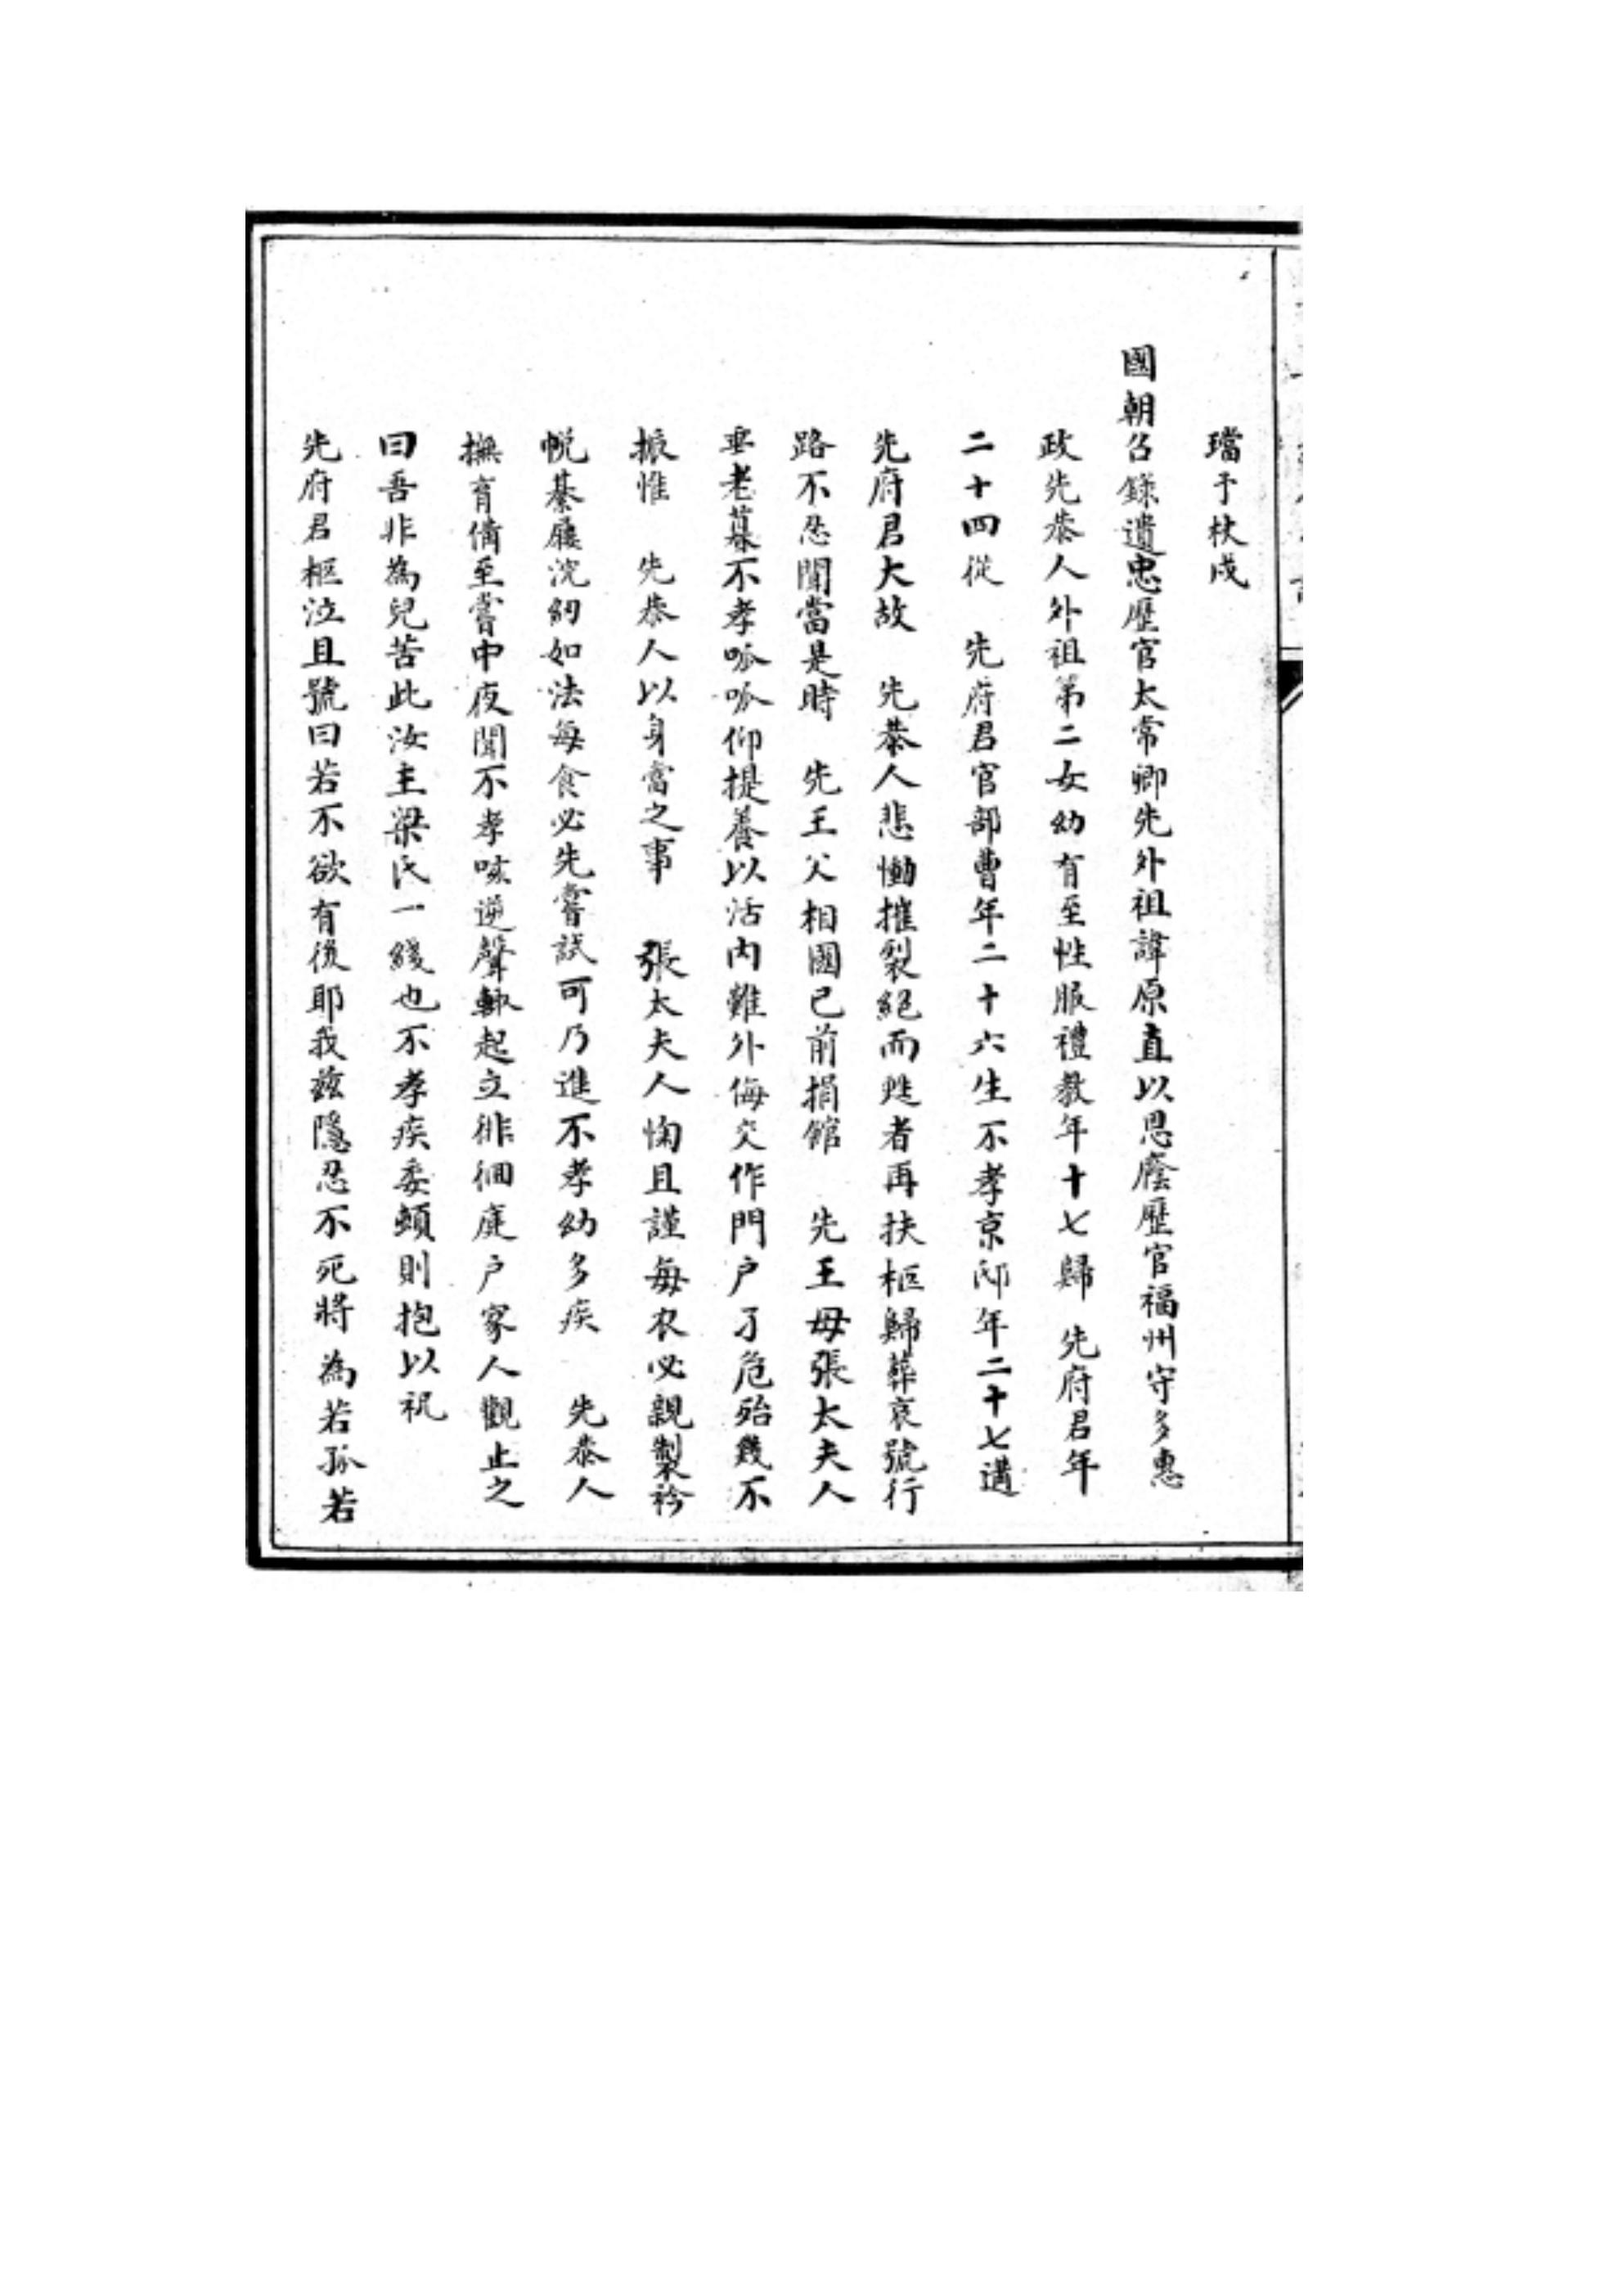 璫予杖戍
國朝召錄遺忠歷官太常卿先外祖諱原直以恩廕歷官福州守多惠
政先恭人外祖第二女幼有至性服禮教年十七歸 先府君年
二十四從 先府君官部曹年二十六生不孝京邸年二十七遘
先府君大故 先恭人悲慟摧裂絕而甦者再扶柩歸葬哀號行
路不忍聞當是時 先王父相國已前捐館 先王母張太夫人
垂老暮不孝呱呱仰提養以活內難外侮交作門户孑危殆幾不
振惟 先恭人以身當之事 張太夫人恂且謹每衣必親製衿
帨綦屨浣紉如法每食必先嘗試可乃進不孝幼多疾 先恭人
撫育備至嘗中夜聞不孝咳逆聲輒起立徘徊庭户家人觀止之
曰吾非為兒苦此汝主梁氏一綫也不孝疾委頓則抱以祝
先府君柩泣且號曰若不欲有後耶我茲隱忍不死將為若孤若